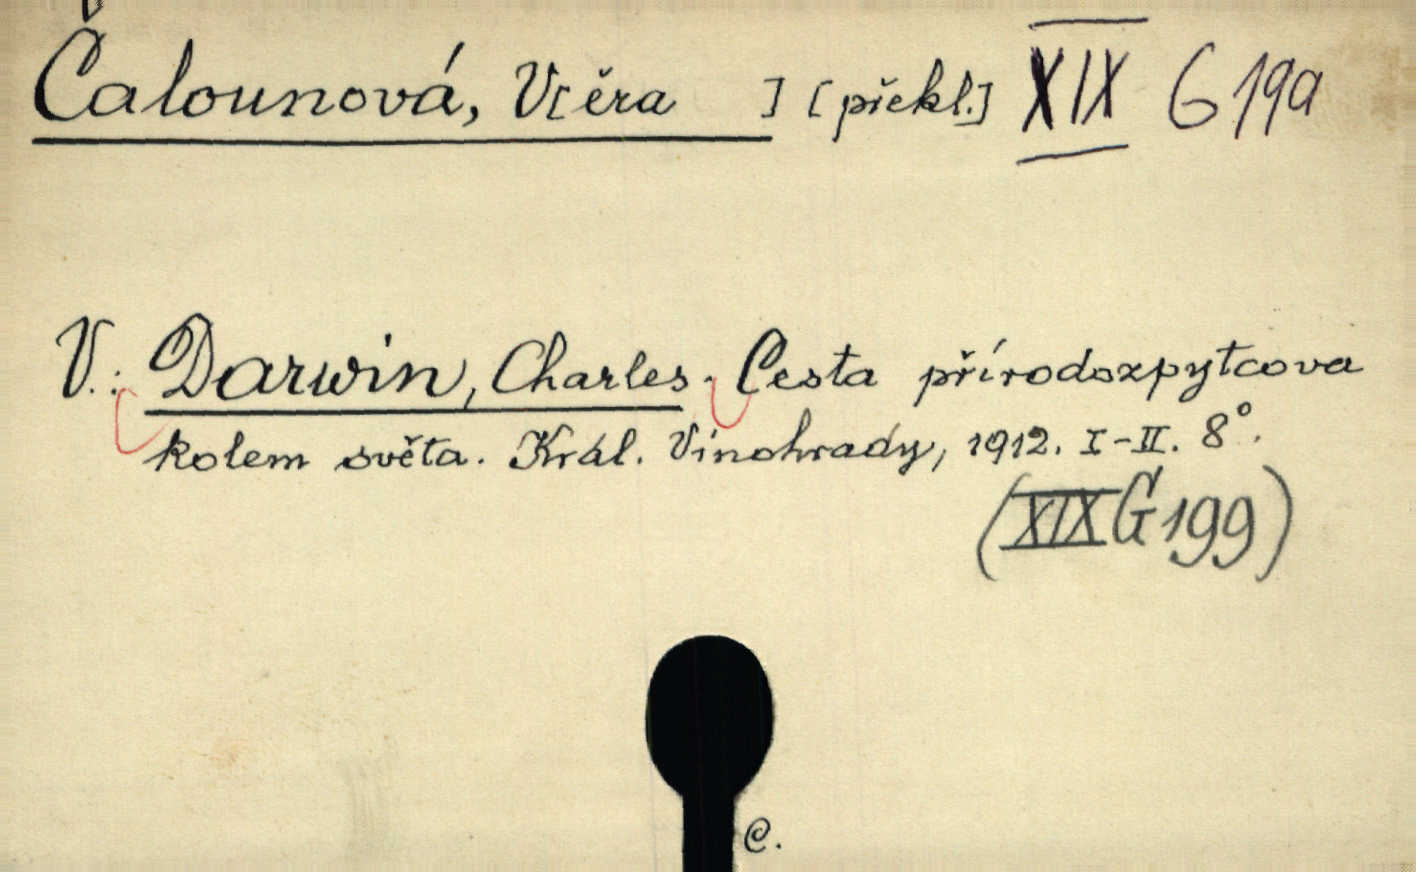 Čalounová, V[ěra ] [překl.] XIX G 199
V.: Darwin, Charles. Cesta přírodozpytcova
kolem světa. Král. Vinohrady, 1912. I-II. 8°.
(XIX G 199)
C.